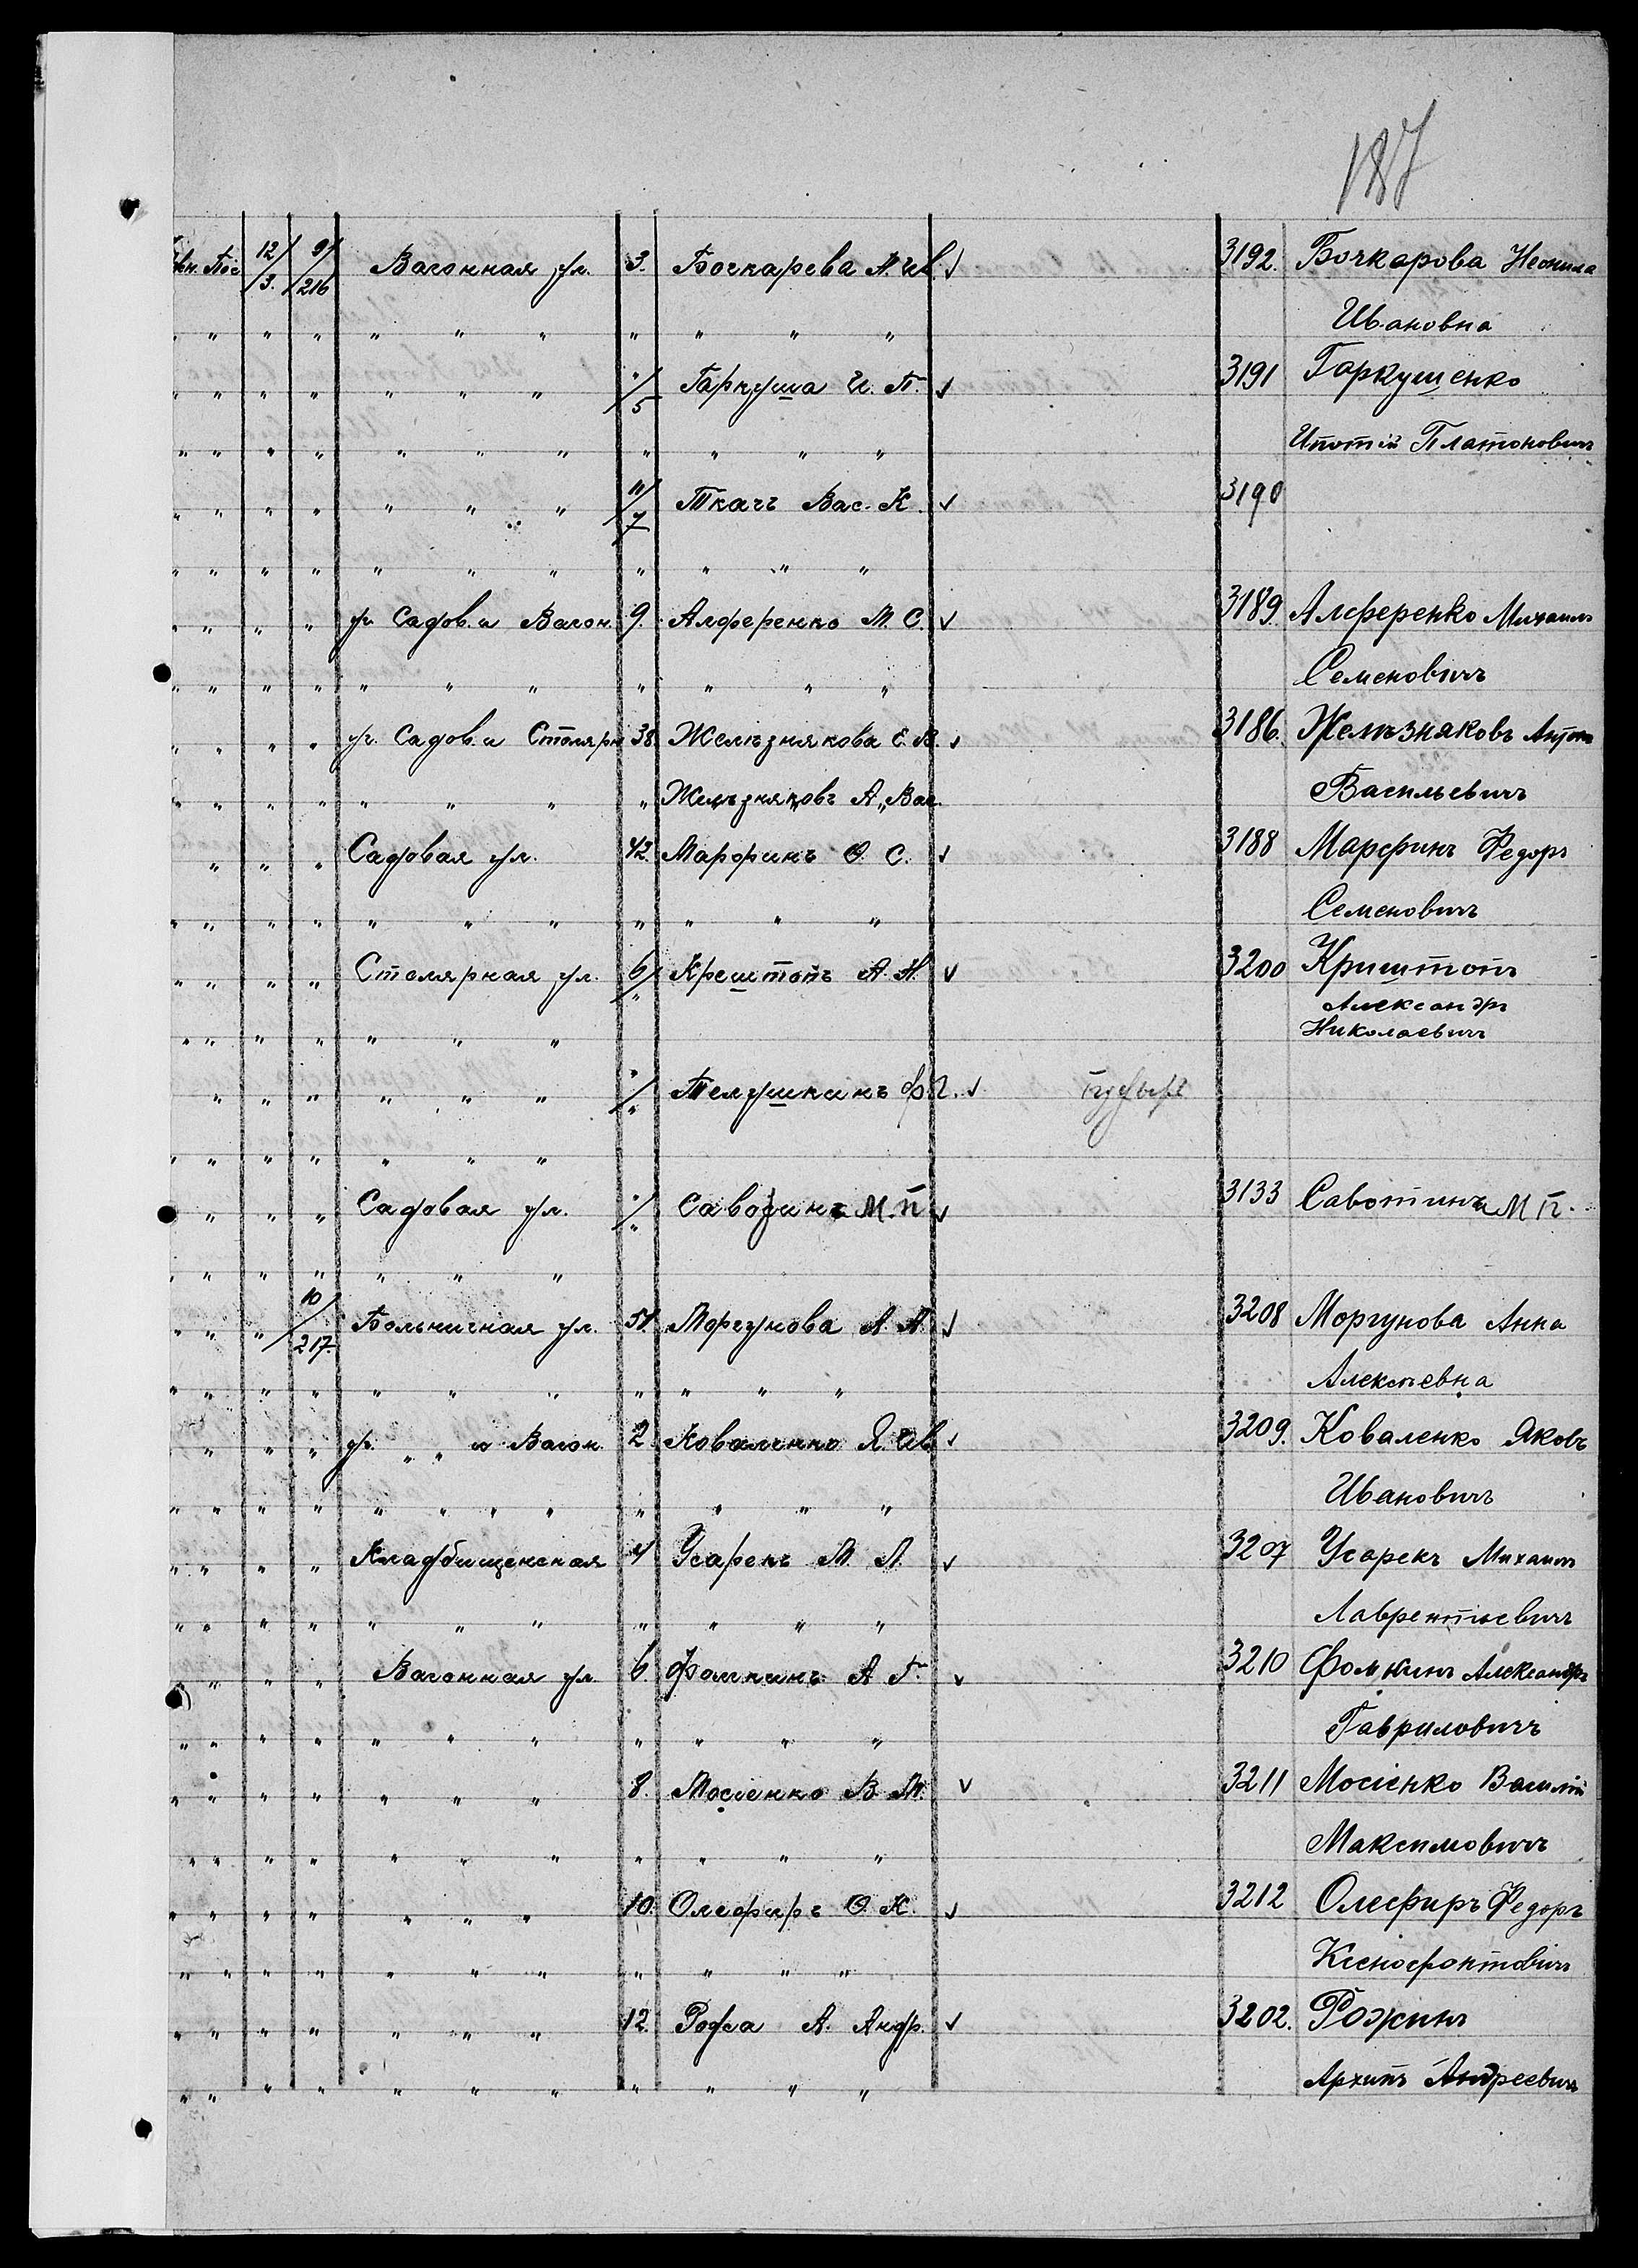 187
Пос 12/3. 9/216 Вагонная ул. 3. Бочкарева Н. Ив. ✓ 3192. Бочкарова Неонила
" " " " " " " " " " " Ивановна
" " " " " " " "/5 Гаркуша И. П. ✓ 3191 Гаркушенко
" " " " " " " " " " " Ипатій Платоновичъ
" " " " " " " 11/7 Ткачъ Вас. К. ✓ 3190
" " " " " " " " " " "
" " " " уг. Садов. и Вагон. 9. Алференко М. С. ✓ 3189. Алференко Михаилъ
" " " " " " " " " " " Семеновичъ
" " " " уг. Садов. и Столярн 38. Желѣзнякова Е. В. ✓ 3186. Желѣзняковъ Антонъ
" " " " " " " " Желѣзняковъ А. Вас. Васильевичъ
" " " Садовая ул. 42. Марфинъ Ѳ. С. ✓ 3188 Марфинъ Федоръ
" " " " " " " " " " " Семеновичъ
" " " " Столярная ул. 6/" Крештопъ А. Н. ✓ 3200 Криштопъ
Александръ
" " " " " " " Николаевичъ
" " " " " " "/" Телушкинъ Ф. П. ✓
" " " " " " "
" " " Садовая ул. "/" Савотинъ М. П. ✓ 3133 Савотинъ М П.
" " " " " " "
" " " 10/217. Больничная ул. 51. Моргунова А. А. ✓ 3208 Моргунова Анна
" " " " " " " " " " " Алексѣевна
" " " уг. " " и Вагон. 2. Коваленко Я. Ив. ✓ 3209. Коваленко Яковъ
" " " " " " " " " " " " Ивановичъ
" " " " Кладбищенская 4 Усарекъ М. Л. ✓ 3207 Усарекъ Михаилъ
" " " " " " " " " " " Лаврентьевичъ
" " " " Вагонная ул. 6. Фомкинъ А. Г. ✓ 3210 Фомкинъ Александръ
" " " " " " " " " " " Гавриловичъ
" " " " " " " 8. Мосіенко В. М. ✓ 3211 Мосіенко Василій
" " " " " " " " " " " Максимовичъ
" " " " " " " 10. Олефиръ Ѳ. К. ✓ 3212 Олефиръ Федоръ
" " " " " " " " " " " Ксенофонтовичъ
" " " " " " " 12. А. Андр. ✓ 3202. Рожинъ
" " " " " " " " " " " Архипъ Андреевичъ